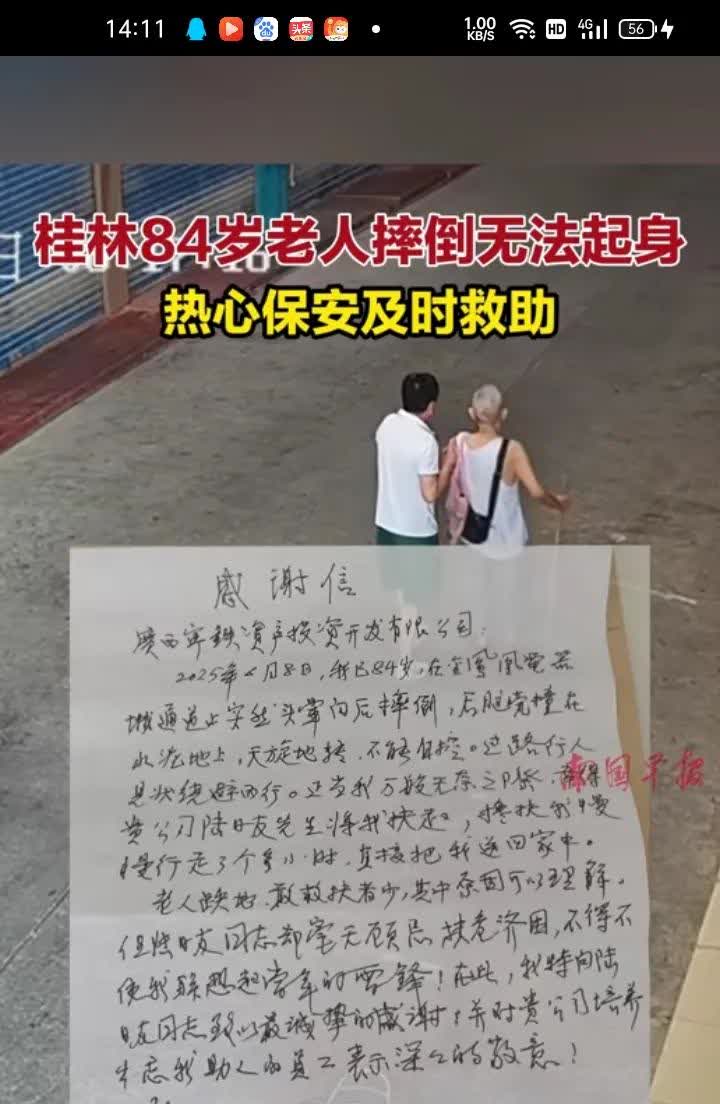 14:11
头条
1.00
KB/S
HD
4G
56
桂林84岁老人摔倒无法起身
热心保安及时救助
感谢信
广西宁铁资产投资开发有限公司：
2025年6月8日，我已84岁，在金凤凰电器
城通道上突然头晕向后摔倒，后脑壳撞在
水泥地上，天旋地转，不能自控。过路行人
见状绕避而行。正当我万般无奈之际，获得
贵公司陆日友先生将我扶起，搀扶我慢
慢行走了个多小时，直接把我送回家中。
老人跌地，敢救扶者少，其中原因可以理解。
但陆日友同志却毫无顾忌扶危济困，不得不
使我联想起当年的雷锋！在此，我特向陆
日友同志致以最诚挚的感谢，并对贵公司培养
生忘我助人的员工表示深深的敬意！
南国早报